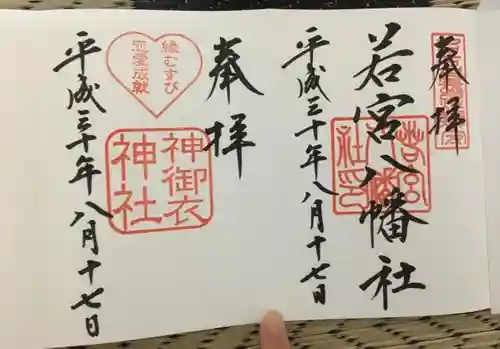 奉拝
若宮八幡社
若宮
社印
平成三十年八月十七日
奉拝
縁むすび
恋愛成就
神御衣
神社
平成三十年八月十七日